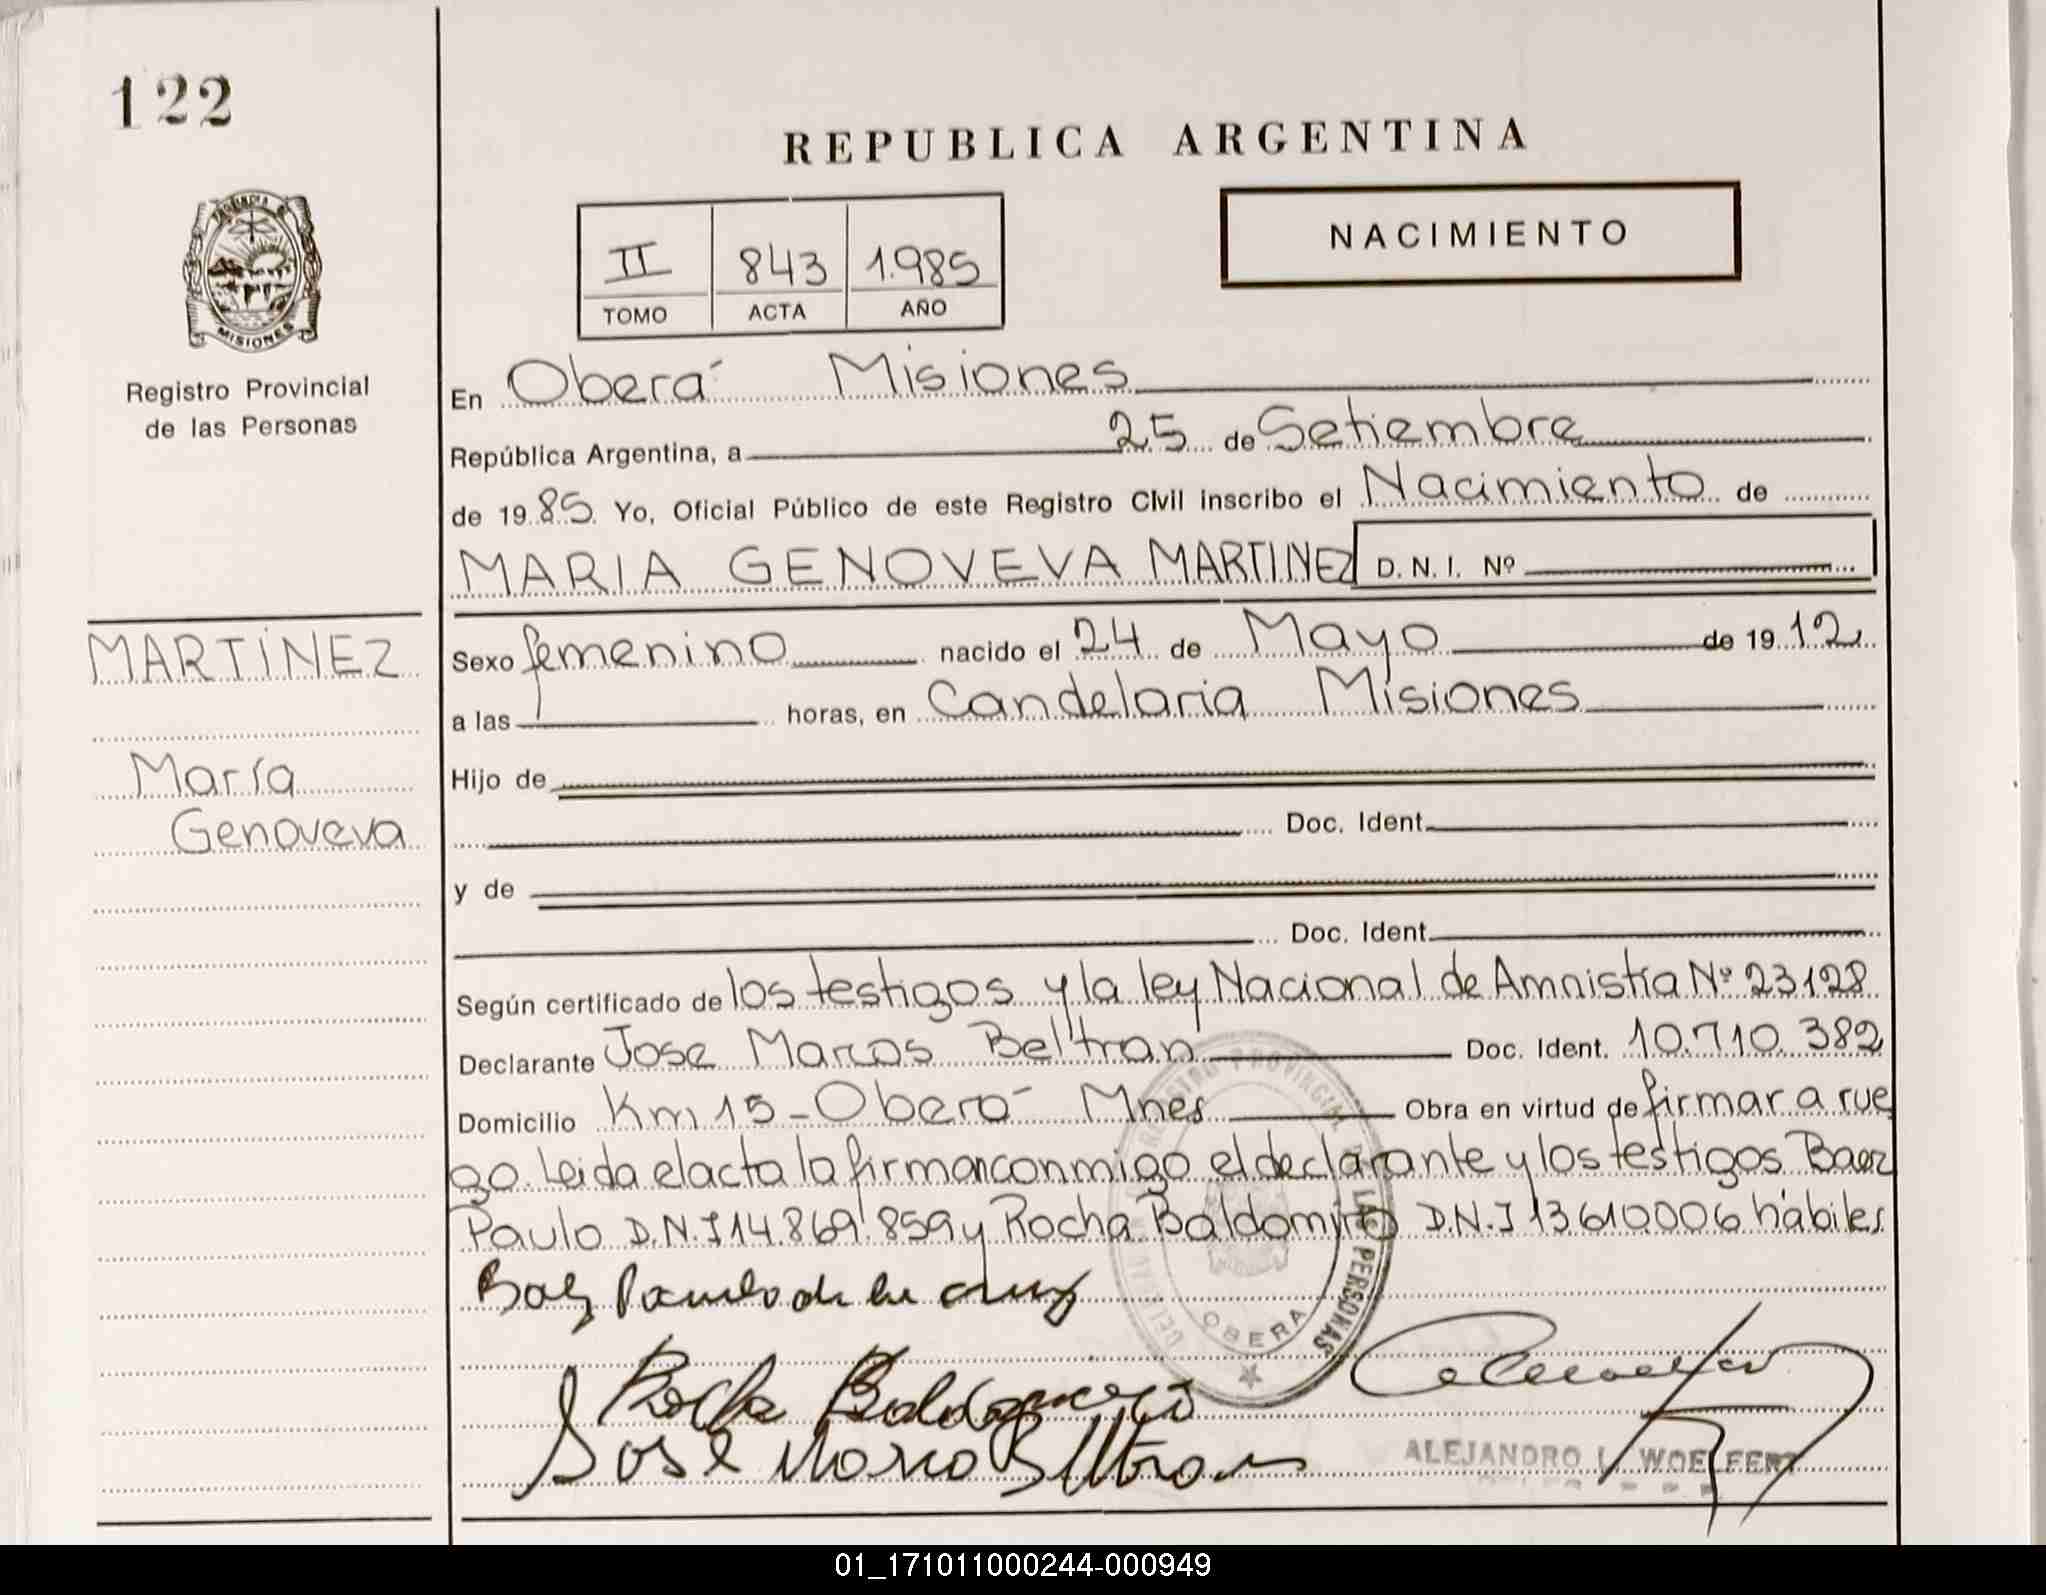 122
REPUBLICA ARGENTINA
PROVINCIA DE
MISIONES
Registro Provincial
de las Personas
II 843 1.985
TOMO ACTA AÑO
NACIMIENTO
En Oberá Misiones
República Argentina, a 25 de Setiembre
de 1985 Yo, Oficial Público de este Registro Civil inscribo el Nacimiento de
MARIA GENOVEVA MARTINEZ D. N. I. Nº
MARTÍNEZ
María
Genoveva
Sexo femenino nacido el 24 de Mayo de 1912
a las horas, en Candelaria Misiones
Hijo de
Doc. Ident.
y de
Doc. Ident.
Según certificado de los testigos y la ley Nacional de Amnistía Nº 23128
Declarante Jose Marcos Beltran Doc. Ident. 10.710.382
Domicilio Km 15 - Oberá Mnes Obra en virtud de firmar a rue
go. Leida el acta la firman conmigo el declarante y los testigos Baez
Paulo D.N.I 14.869.859 y Rocha Baldomiro D.N.I 13610.006 hábiles.
Baez Paulo de la cruz
Rocha Baldomero
José Marco Beltran
REGISTRO PROVINCIAL DE LAS PERSONAS
OBERA
ALEJANDRO L. WOELFERT
01_171011000244-000949